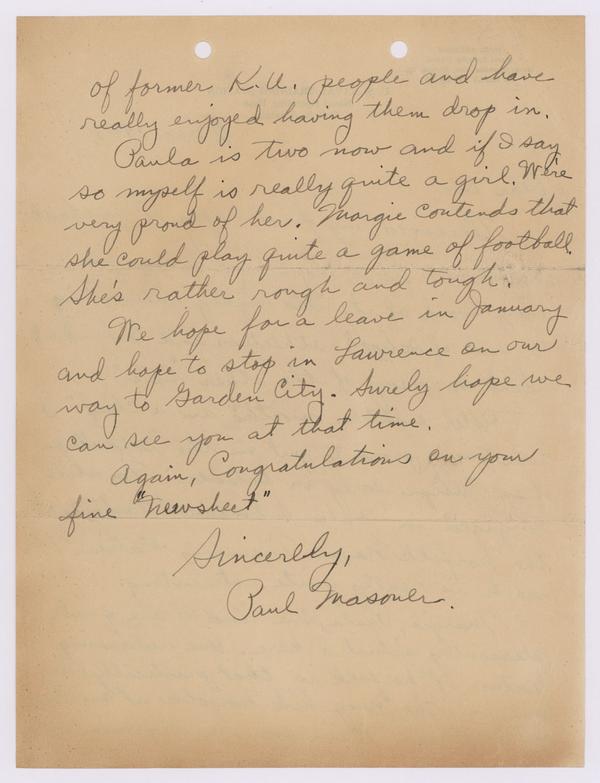 of former K.U. people and have
really enjoyed having them drop in.
Paula is two now and if I say
so myself is really quite a girl. We're
very proud of her. Margie contends that
she could play quite a game of football.
She's rather rough and tough.
We hope for a leave in January
and hope to stop in Lawrence on our
way to Garden City. Surely hope we
can see you at that time.
Again, Congratulations on your
fine "Newsheet"
Sincerely,
Paul Masoner.